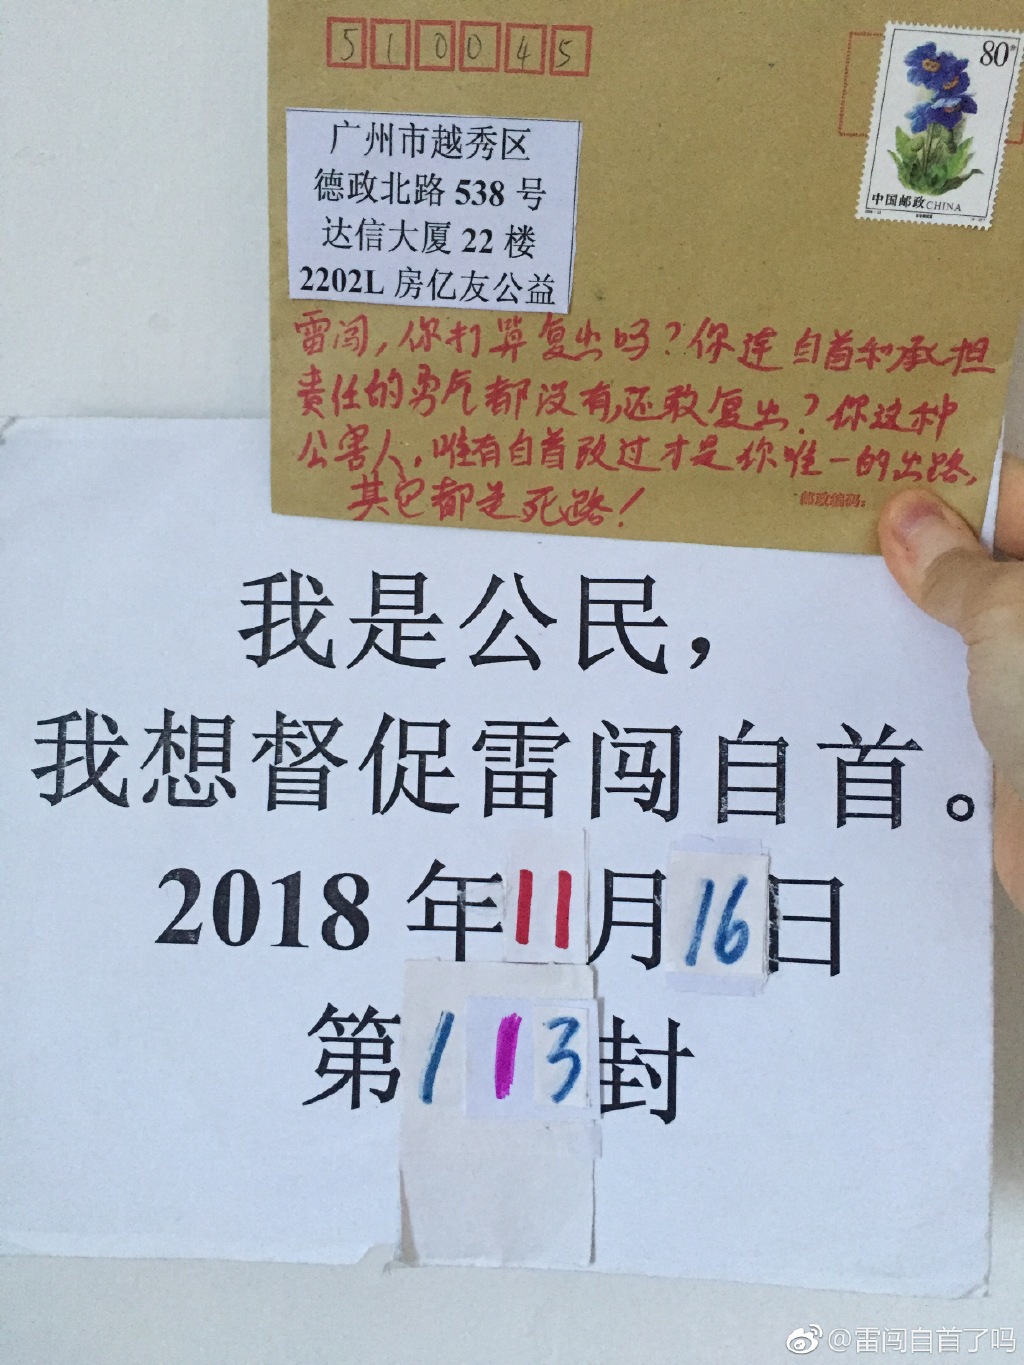 510045
80
中国邮政 CHINA
广州市越秀区
德政北路 538 号
达信大厦 22 楼
2202L 房亿友公益
雷闯,你打算复出吗?你连自首和承担
责任的勇气都没有,还敢复出?你这种
公害人,唯有自首改过才是你唯一的出路,
其它都是死路!
邮政编码:
我是公民,
我想督促雷闯自首。
2018 年11月16日
第113封
@雷闯自首了吗